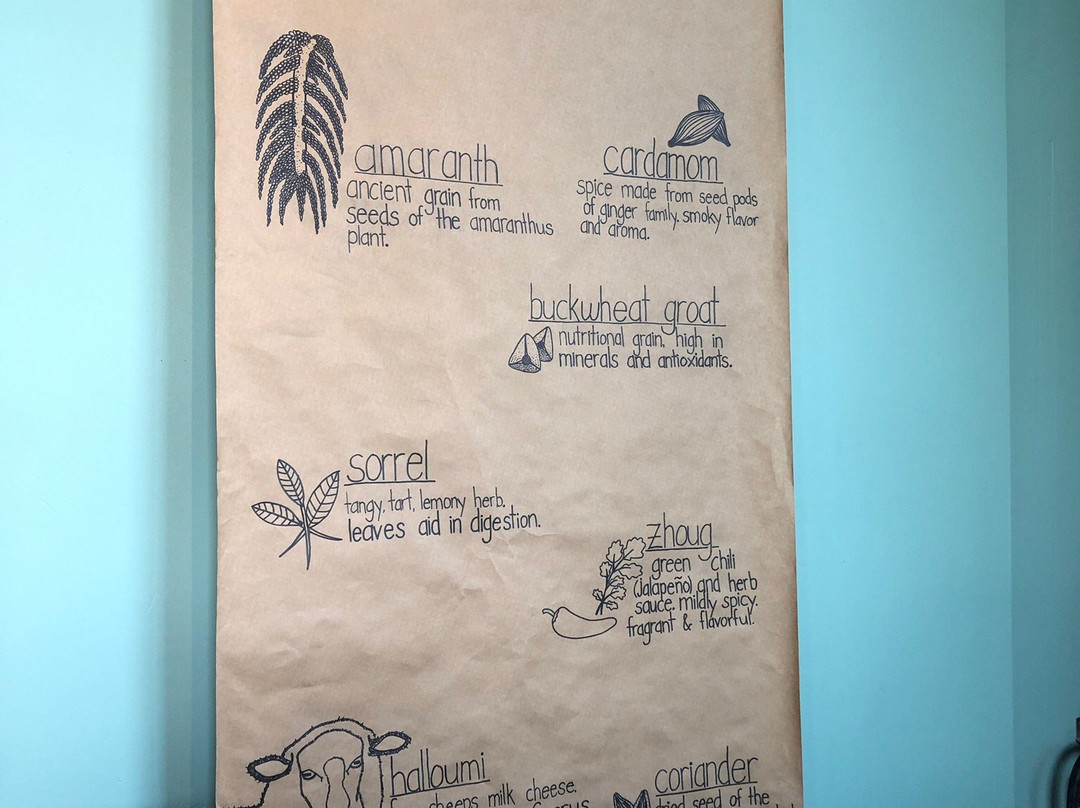 amaranth
ancient grain from
seeds of the amaranthus
plant.
cardamom
spice made from seed pods
of ginger family. smoky flavor
and aroma.
buckwheat groat
nutritional grain, high in
minerals and antioxidants.
sorrel
tangy, tart, lemony herb.
leaves aid in digestion.
zhoug
green chili
(Jalapeño) and herb
sauce. mildly spicy.
fragrant & flavorful.
halloumi
milk cheese.
coriander
dried seed of the